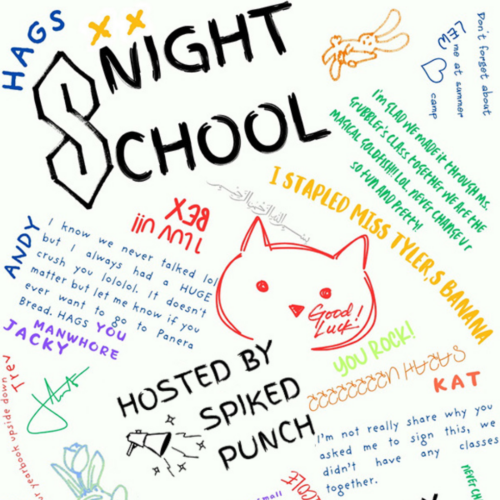 HAGS
NIGHT
SCHOOL
Don't forget about
me at summer
camp
I'm GLAD WE MADE iT THROUGH MS.
GRUBBLEr's CLASS TOGETHER. WE ARE THE
MAGICAL GOLDFISH!! LOL. NEVER CHANGE Ur
SO FUN AND PRETTY!
I STAPLED MISS TYLER,S BANANA
I LUV U!!
BEX
ANDY
I know we never talked lol
but I always had a HUGE
crush you lololol. It doesn't
matter but let me know if you
ever want to go to Panera
Bread. HAGS YOU
MANWHORE
JACKY
Good!
Luck!
YOU ROCK!
KAT
HOSTED BY
SPIKED
PUNCH
Trev
yearbook upside down
I'm not really share why you
asked me to sign this, we
didn't have any classes
together.
small
NEVER